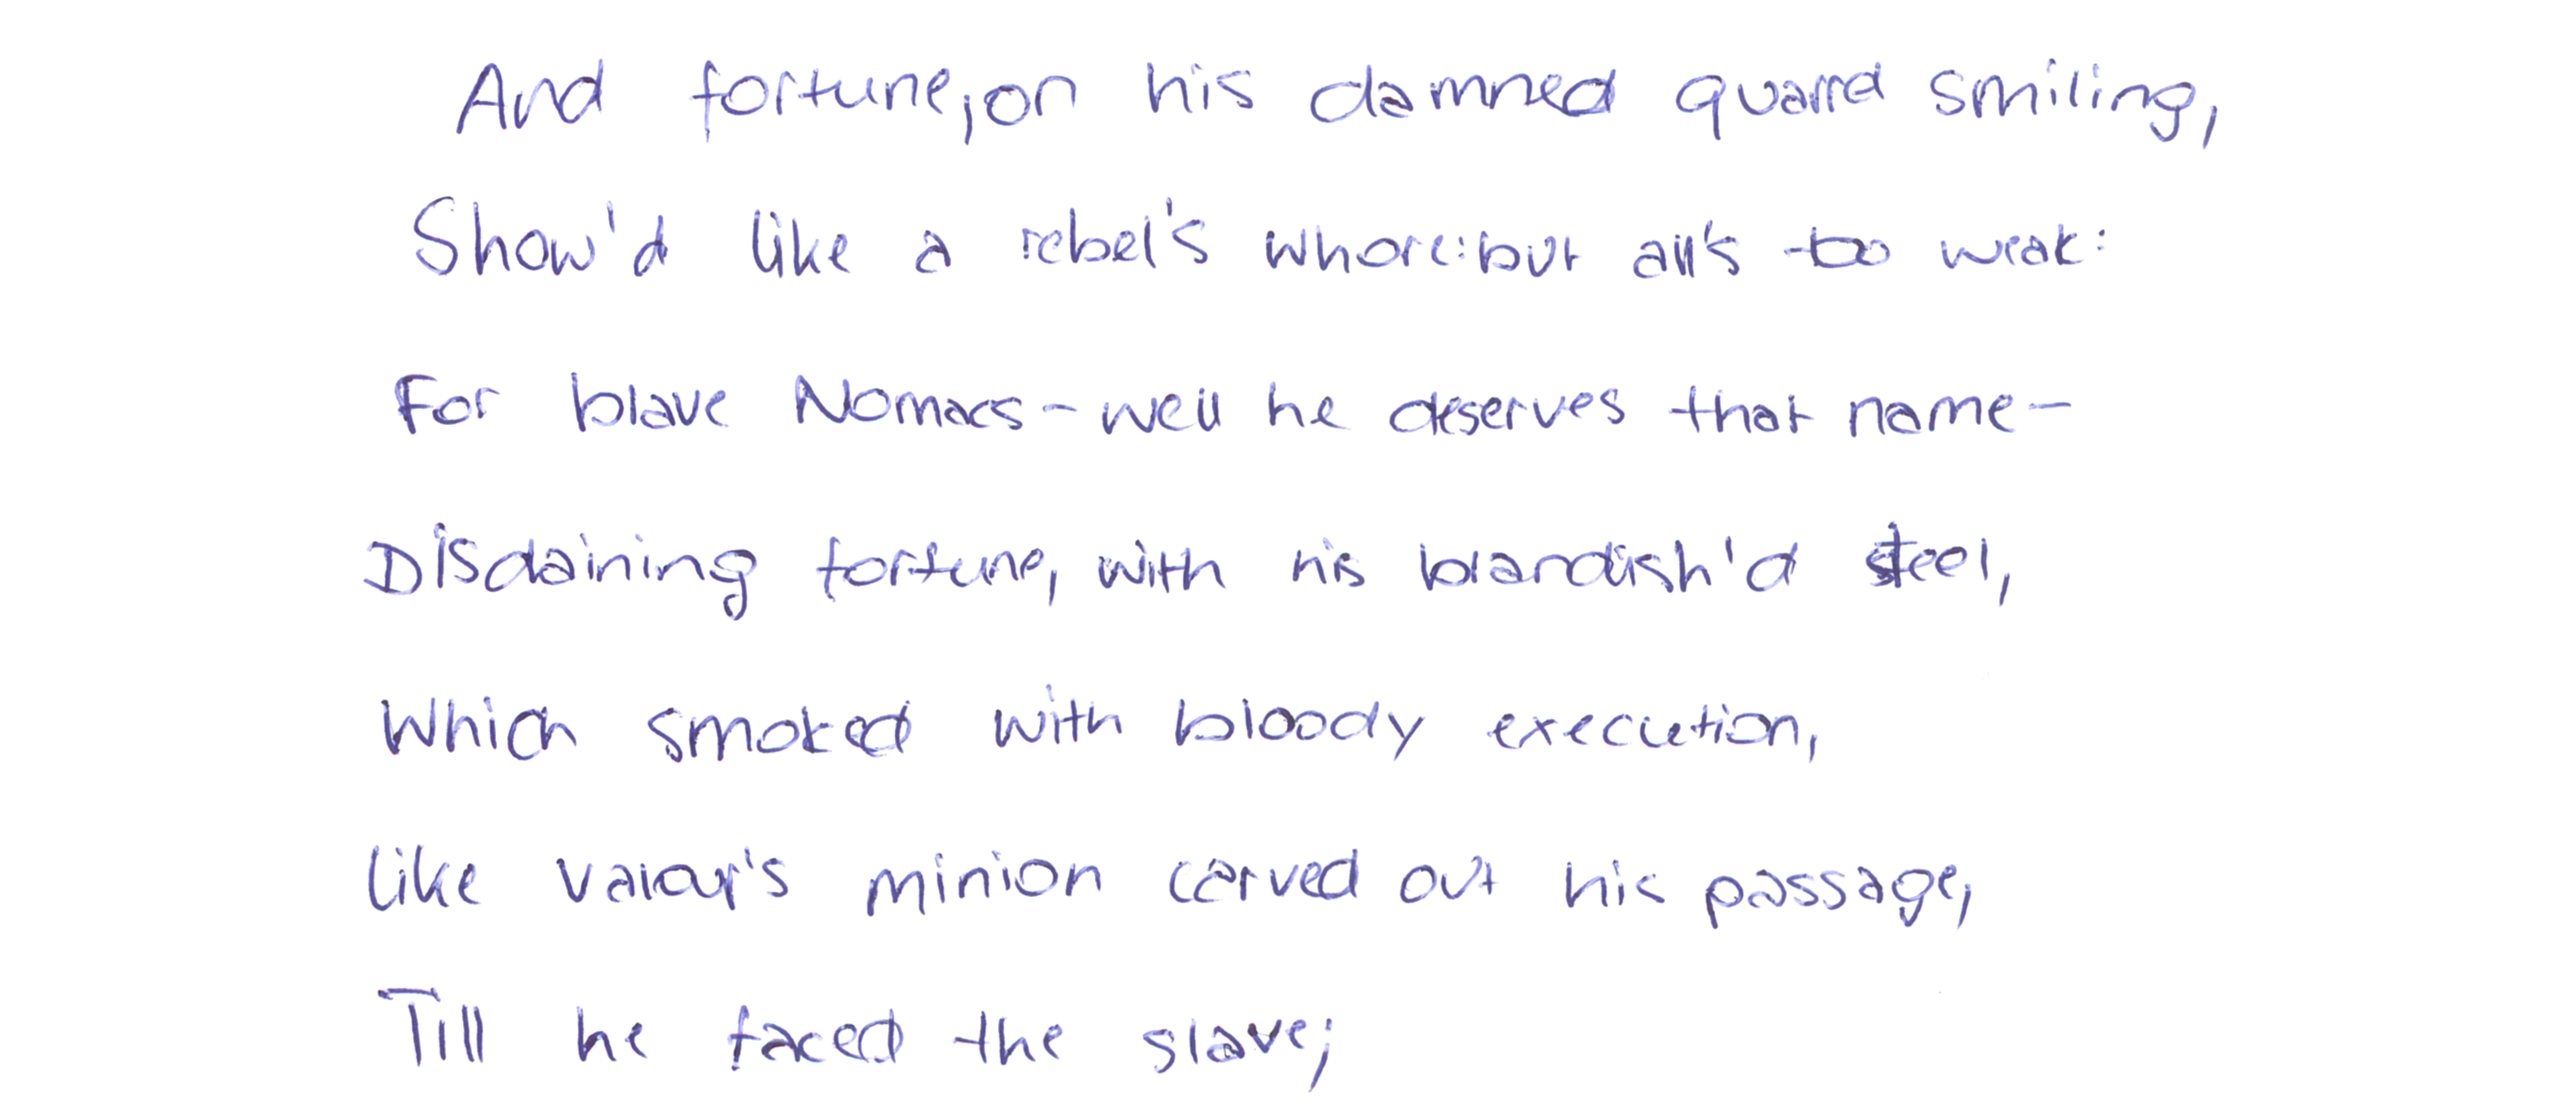 And fortune, on his damned quarrel smiling,
Show'd like a rebel's whore: but all's too weak:
For blave Nomacs - well he deserves that name -
Disdaining fortune, with his blandish'd steel,
Which smoked with bloody execution,
like valour's minion carved out his passage,
Till he faced the slave;